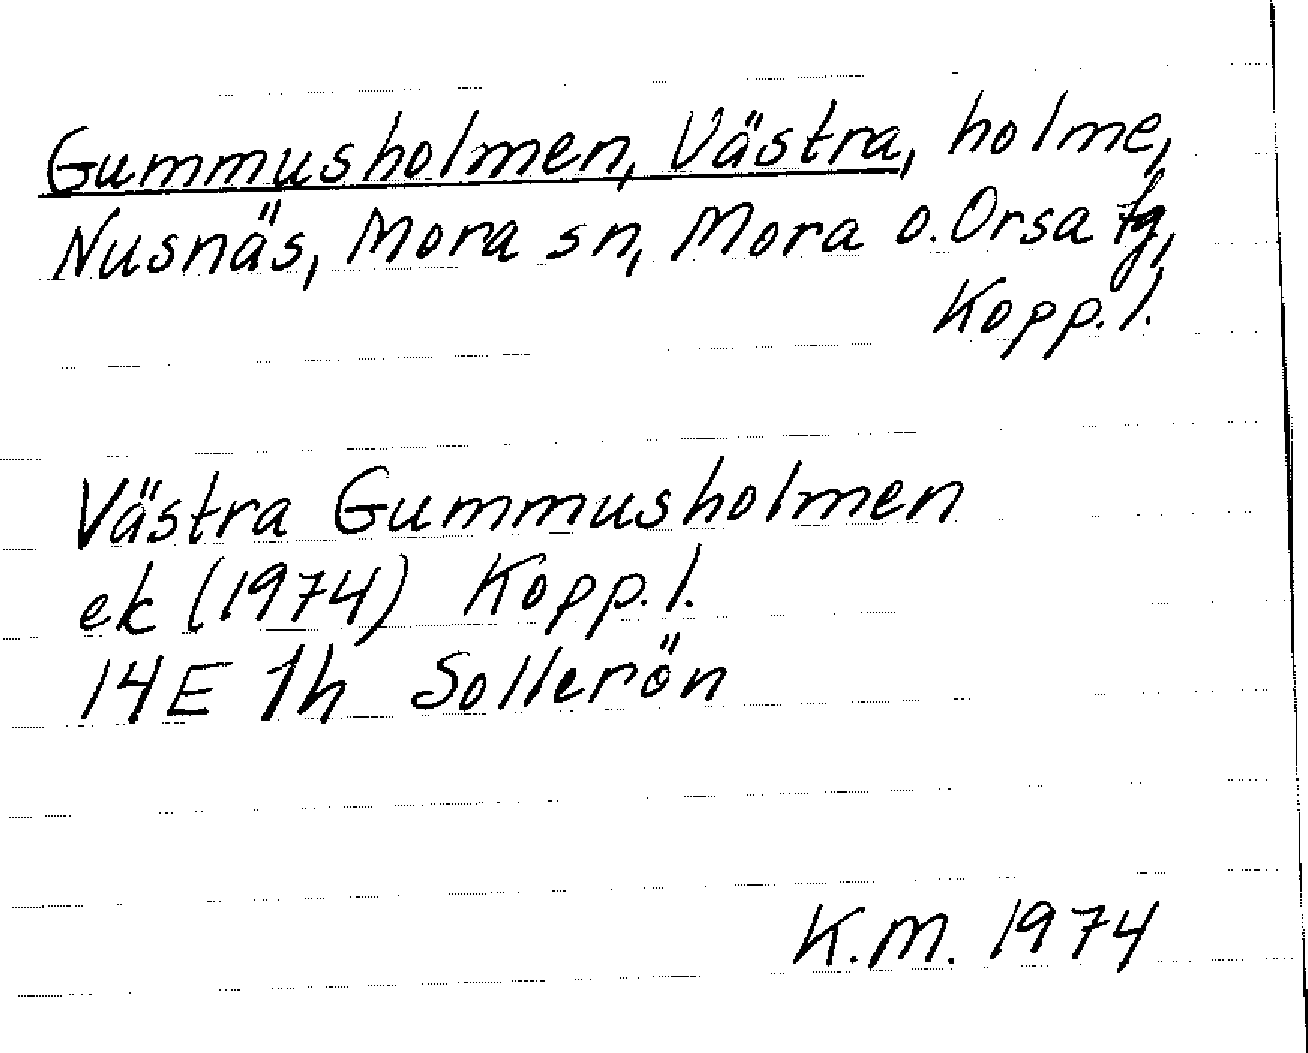 Gummusholmen, Västra, holme,
Nusnäs, Mora sn, Mora o. Orsa tg,
Kopp. l.
Västra Gummusholmen
ek (1974) Kopp. l.
14 E 1h Sollerön
K.M. 1974